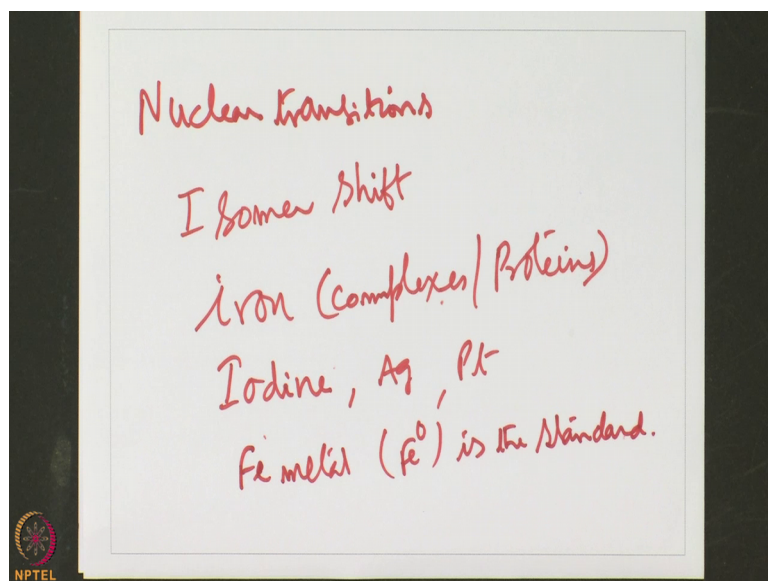 Nuclear transitions
Isomer Shift
iron (complexes/Proteins)
Iodine, Ag, Pt
Fe metal (Fe⁰) is the standard.
NPTEL